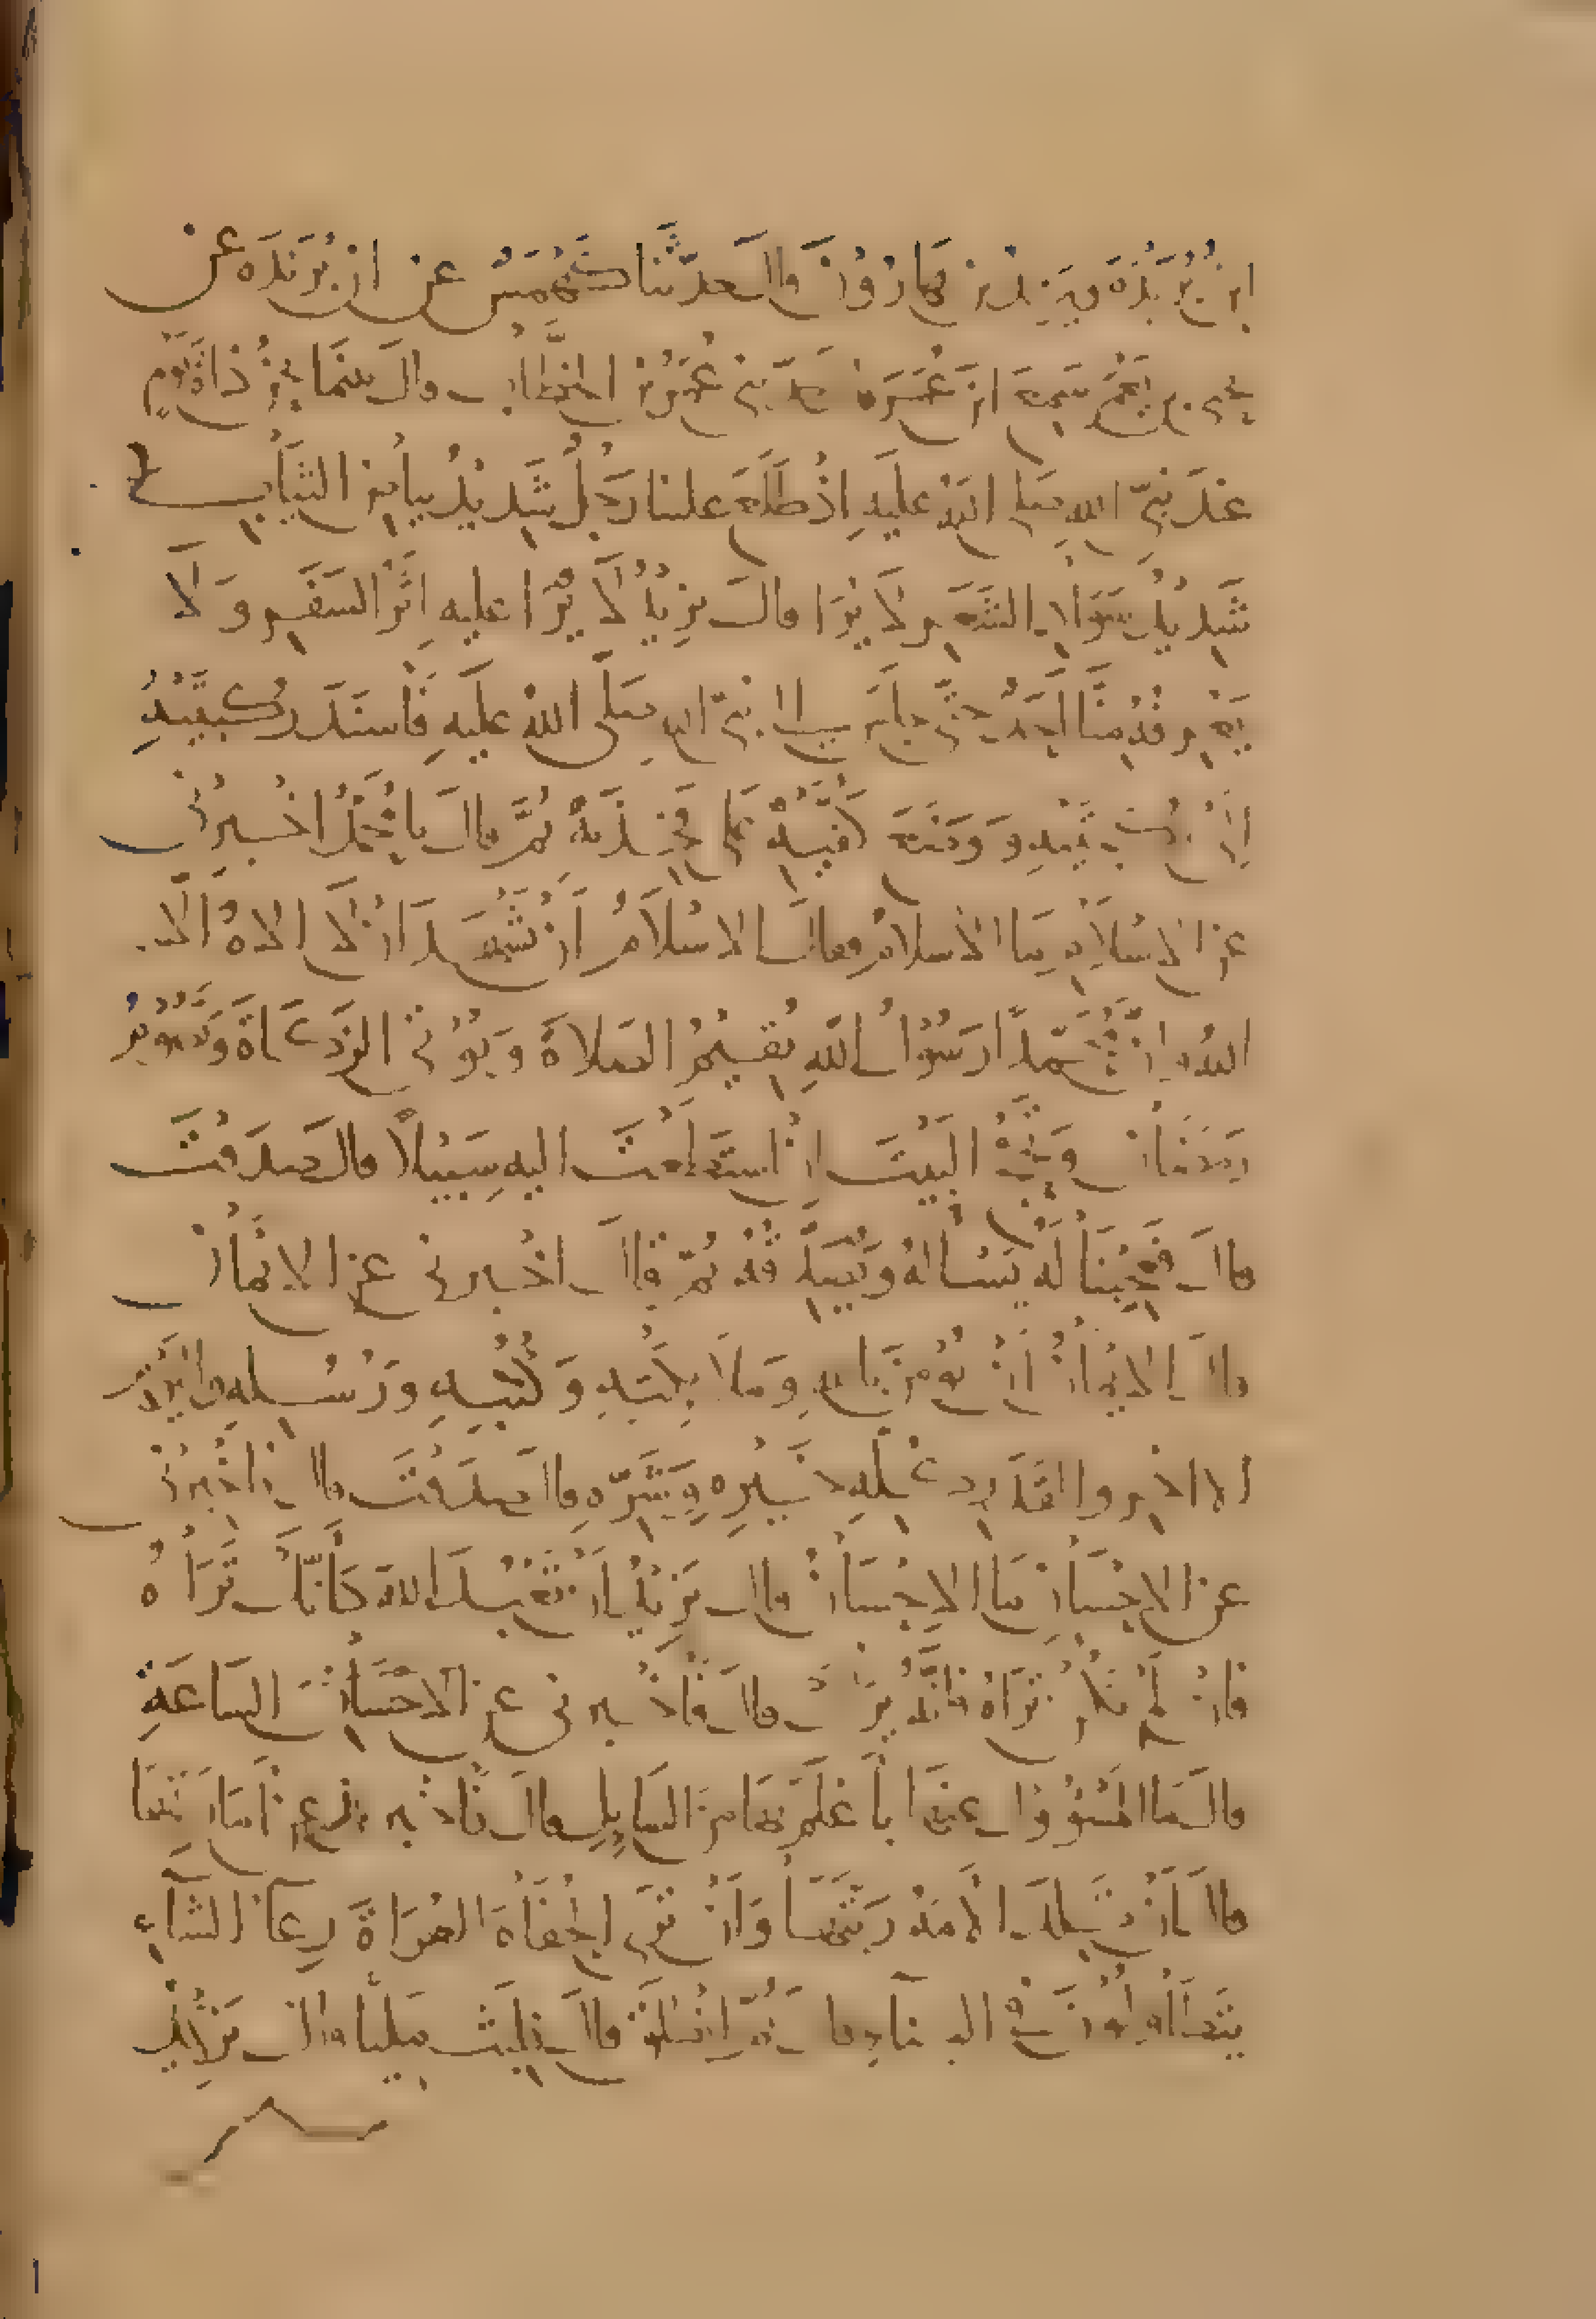 ابن بُرَيْدَة ويزيد بن هَارُوْنَ قال حدّثنا كَهْمَسٌ عن ابن بُرَيْدَة عن
يحيى بن يَعْمَُر سَمِعَ ابنَ عُمَرَ قال حدّثني عُمَرُ بن الخطَّابُ قال بينمَا نحنُ ذاةَ يَومٍ
عندَ نبيّ الله صلى اللهُ عليهِ اِذْ طَلَعَ علينا رَجُلٌ شَدِيْدُ بياضِ الثيَابِ
شَدِيْدُ سَوَادِ الشَعَرِ لَا يُرَا قال يزِيدُ لَا يُرَا عليهِ اَثَرُ السَفَرِ وَلَا
يَعْرِفُهُ منَّا اَحَدٌ حتَّى جلَسَ الى نبيّ الله صلَّى اللهُ عليَهِ فَاسندَ رُكبَتَيْهِ
اِلى رُكْبَتَيْهِ وَوَضَعَ كفَّيْهُ عَلى فخِذَيهْ ثُمَّ قالَ يا مُحَمَّدُ اخْبِرْني
عن الاسْلَامِ مَا الاسلامُ فقالَ الاسْلَامُ أَنْ تشْهَدَ اَنْ لَا الاهُ اَلا
اللهُ وانَّ مُحَمّداً رَسُوْلُ اللهِ تُقيْمُ الصَلاةَ وتؤْتي الزَكَاةَ وَتَصُوْمُ
رَمَضَانَ وَتحُجُّ البَيْتَ انْ استَطعْتَ اليه سَبيْلاً قالَ صَدَقْتَ
قالَ فعَجِبْنَا لَهُ يَسْالهُ وَيُصَدِّقُهُ ثُمّ قالَ اخْبرني عن الايمَانِ
قالَ الايْمَانُ اَنْ تُؤْمِنَ باللهِ وَمَلَايِكَتِهِ وَكُتُبِهِ وَرُسُلِهِ واليَوْمِ
الااخر والقَدَرِ كُلِّهِ خَيْرِهِ وَشَرِّهِ قالَ صَدَقْتَ قالَ فاخْبرْني
عن الاحْسَانِ مَا الاحْسَانُ قالَ يَزِيْدُ اَنْ تَعْبُدَ اللهَ كَأَنّكَ تَرَاهُ
فانْ لَمْ تَكُنْ تَرَاهُ فانَّهُ يرَاكَ قالَ فَاخْبرني عن الاحْسَانِ السَاعَةِ
قالَ مَا المَسْؤوْل عنهَا بأعْلَمَ بهَا منَ السَايِلِ قالَ فَاخْبرني عن اَمَارَتهَا
قالَ اَنْ تَلِدَ الاَمَةُ رَبَّتهَا وَاَنْ تَرَى الحُفَاةَ العُرَاةَ رِعَاءَ الشَاءِ
يَتَطَاوَلُوْنَ فيْ البنَاءِ قال ثُمّ انْطلقَ قالَ فلبثَ مَليًّا قالَ يَزِيْدُ